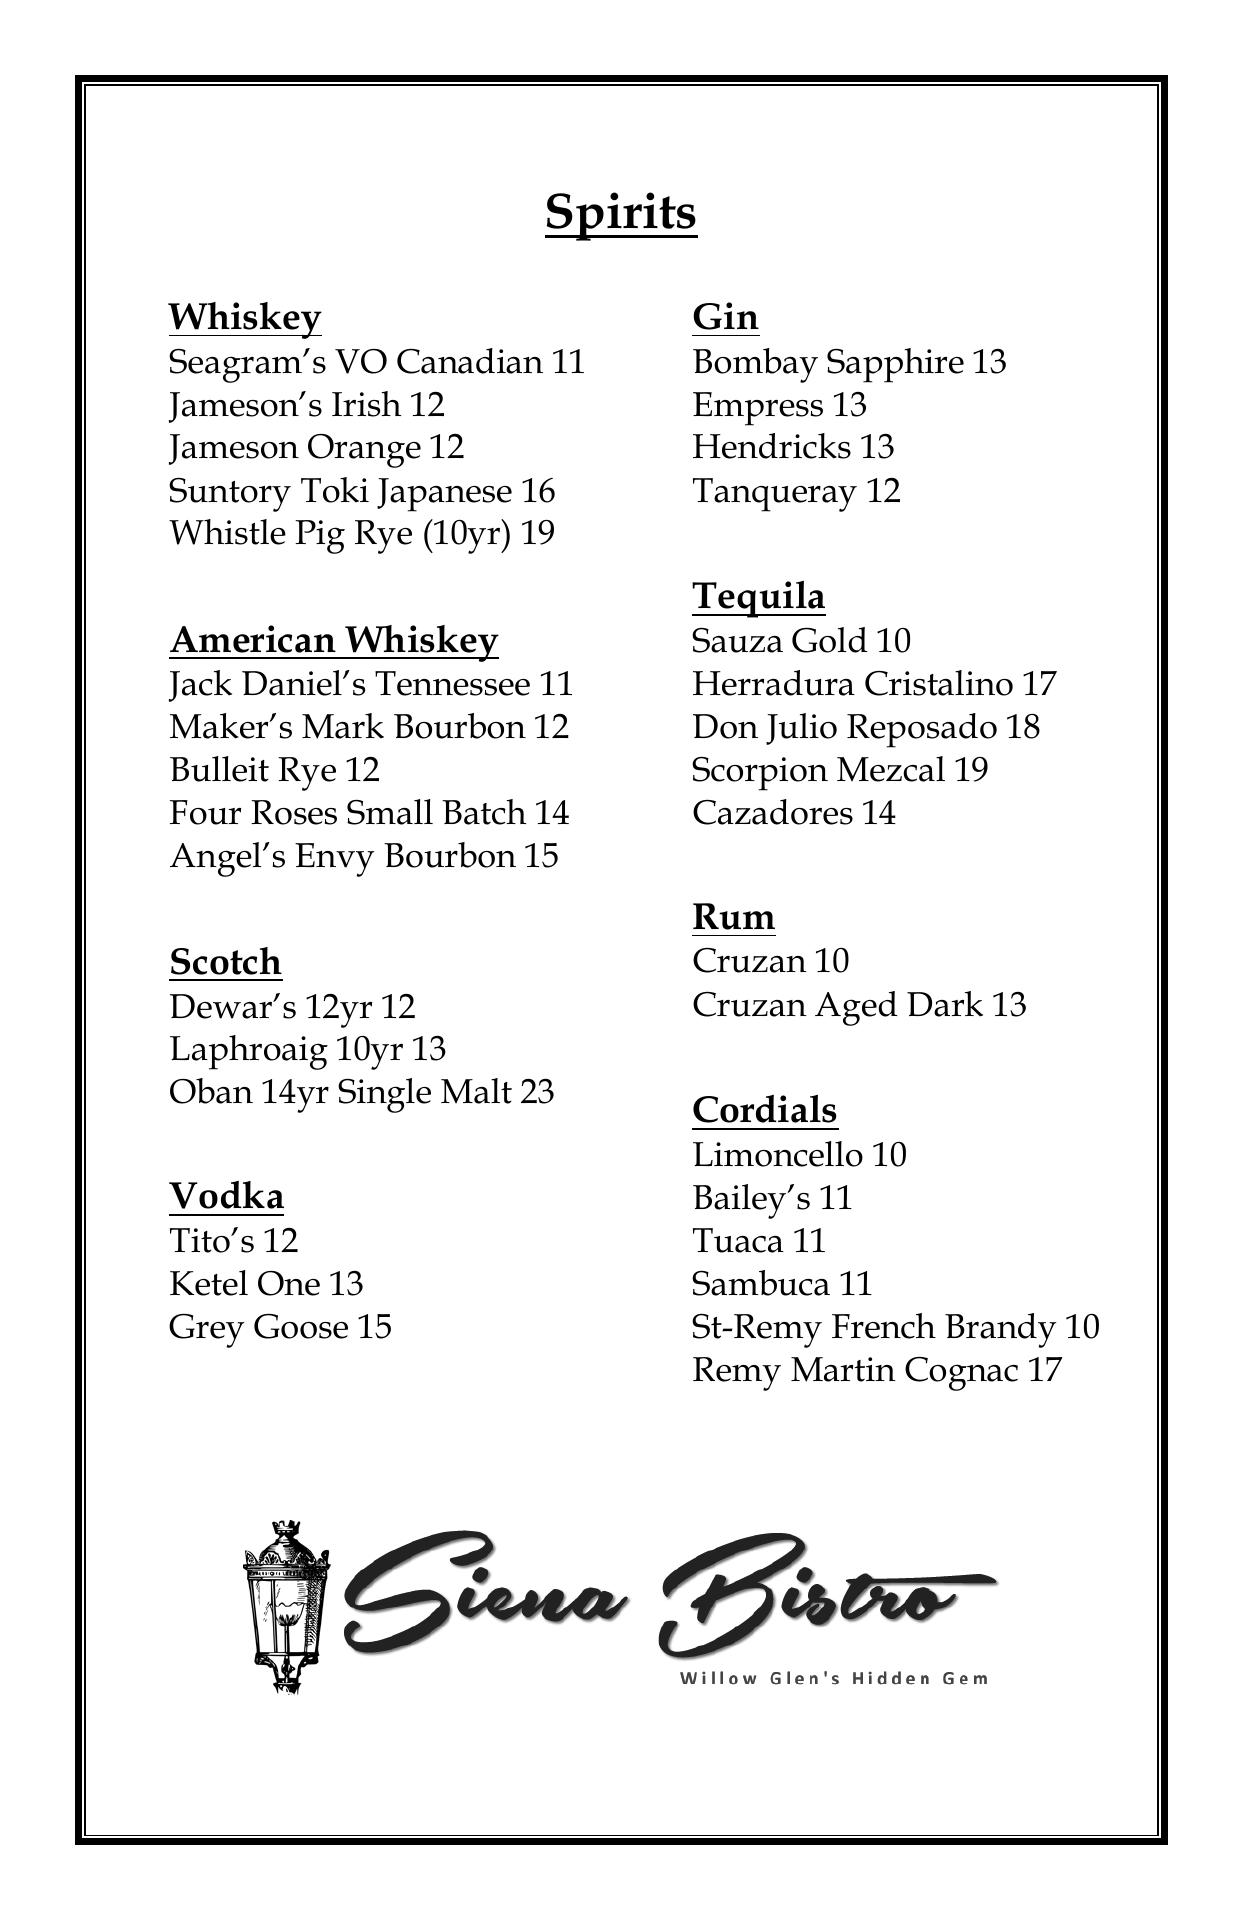 Spirits
Whiskey
Seagram’s VO Canadian 11
Jameson’s Irish 12
Jameson Orange 12
Suntory Toki Japanese 16
Whistle Pig Rye (10yr) 19
American Whiskey
Jack Daniel’s Tennessee 11
Maker’s Mark Bourbon 12
Bulleit Rye 12
Four Roses Small Batch 14
Angel’s Envy Bourbon 15
Scotch
Dewar’s 12yr 12
Laphroaig 10yr 13
Oban 14yr Single Malt 23
Vodka
Tito’s 12
Ketel One 13
Grey Goose 15
Gin
Bombay Sapphire 13
Empress 13
Hendricks 13
Tanqueray 12
Tequila
Sauza Gold 10
Herradura Cristalino 17
Don Julio Reposado 18
Scorpion Mezcal 19
Cazadores 14
Rum
Cruzan 10
Cruzan Aged Dark 13
Cordials
Limoncello 10
Bailey’s 11
Tuaca 11
Sambuca 11
St-Remy French Brandy 10
Remy Martin Cognac 17
Siena Bistro
Willow Glen's Hidden Gem